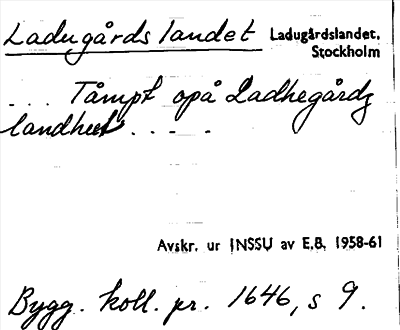 Ladugårdslandet
Ladugårdslandet,
Stockholm
... Tåmpt opå Ladhegårdz
landhet . . . .
Avskr. ur INSSU av E.B. 1958-61
Bygg. koll. pr. 1646, s 9.